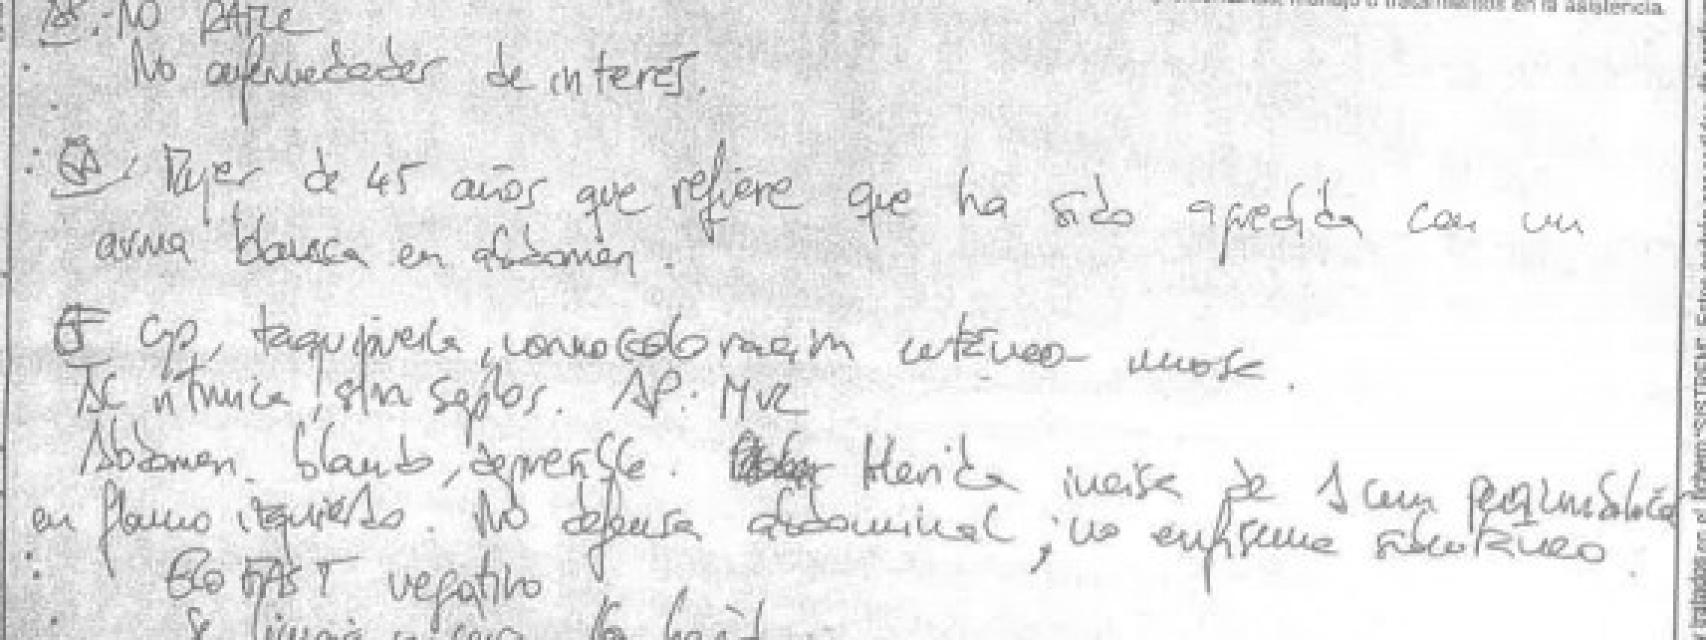 tratamientos en la asistencia.
No
No enfermedades de interés.
Mujer de 45 años que refiere que ha sido agredida con un
arma blanca en abdomen.
EF taquipneica, normocoloración cutáneo mucosa.
AC rítmica, sin soplos. AP: MVC
Abdomen blando, depresible. Herida incisa de 1 cm periumbilical
en flanco izquierdo. No defensa abdominal, no enfisema subcutáneo.
Eco FAST negativo
Se limpia la herid